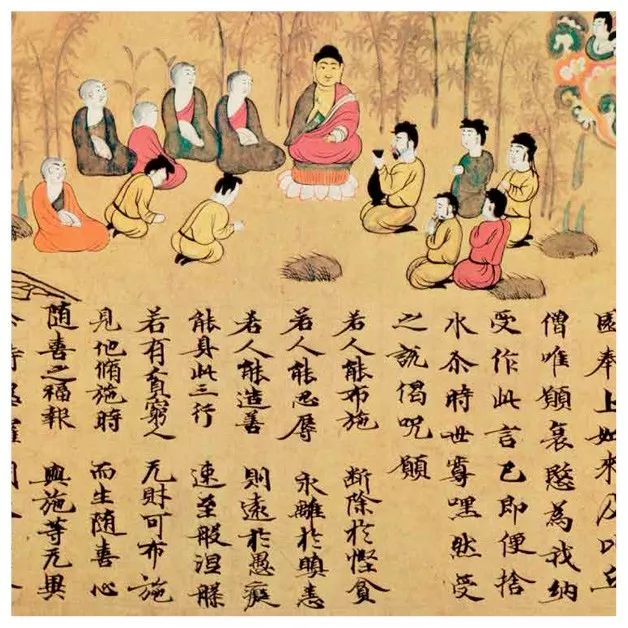 園奉上如來及比丘
僧唯願哀愍為我納
受作此言已即便捨
水尒時世尊嘿然受
之說偈呪願
若人能布施 斷除於慳貪
若人能忍辱 永離於瞋恚
若人能造善 則遠於愚癡
能具此三行 速至般涅槃
若有貧窮人 无財可布施
見他脩施時 而生随喜心
随喜之福報 與施等无異